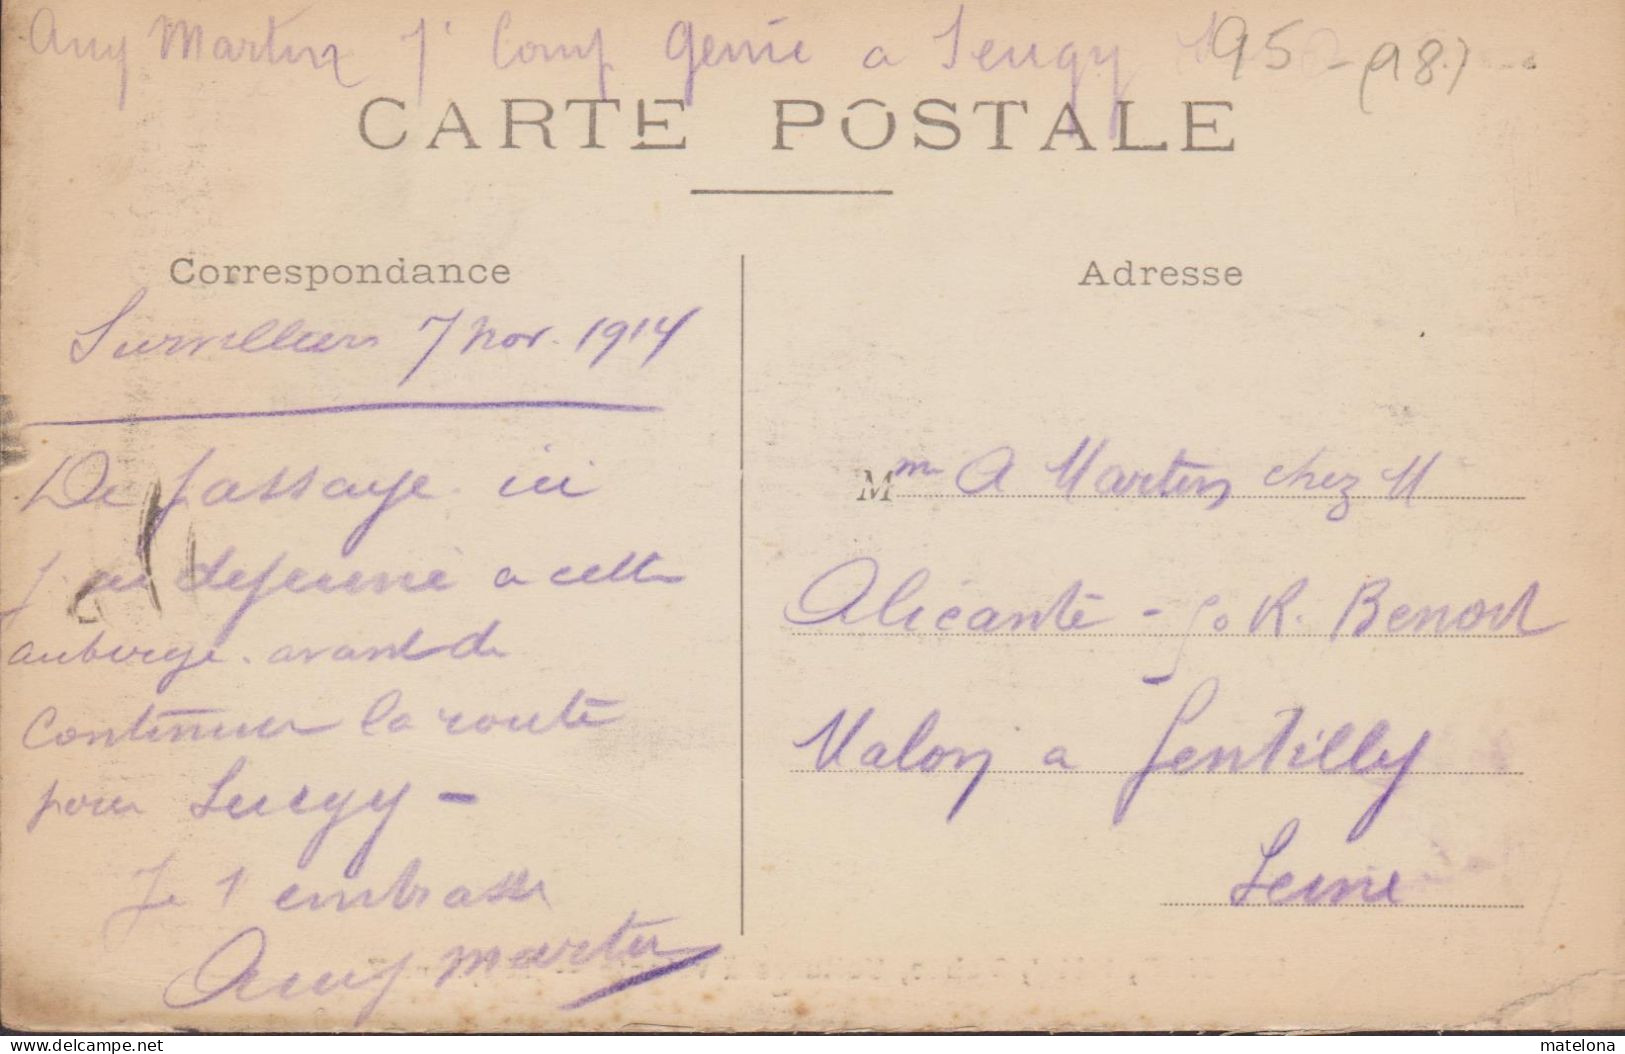 Aug Martin 1e Comp Génie a Seugy 95 - (98)
CARTE POSTALE
Correspondance
Adresse
Survilliers 7 nov. 1914
De passage ici
J'ai dejeuné a cette
auberge. avant de
Continuer la route
pour Seugy -
Je t embrasse
Aug Martin
Mme A Martin chez M
Alicante - R. Benoit
Malon a Gentilly
Seine
www.delcampe.net
matelona